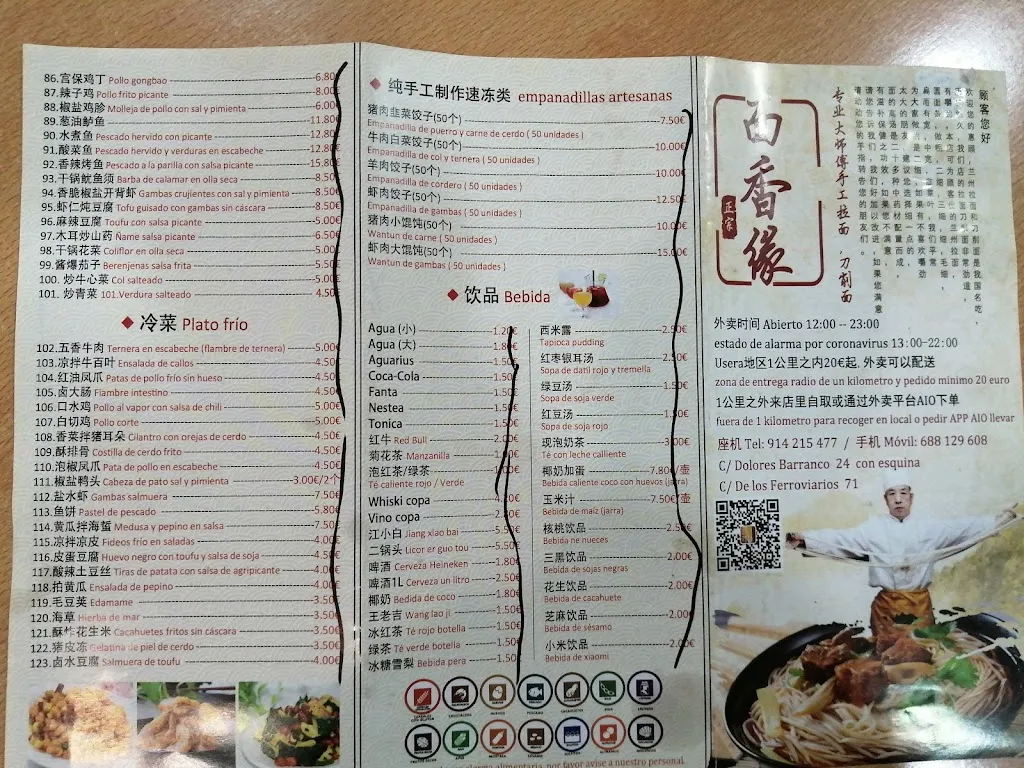 86.宫保鸡丁 Pollo gongbao 6.80
87.辣子鸡 Pollo frito picante 8.00
88.椒盐鸡胗 Molleja de pollo con sal y pimienta 6.00
89.葱油鲈鱼 11.80
90.水煮鱼 Pescado hervido con picante 12.80
91.酸菜鱼 Pescado hervido y verduras en escabeche 12.80
92.香辣烤鱼 Pescado a la parilla con salsa picante 15.80
93.干锅鱿鱼须 Barba de calamar en olla seca 8.50
94.香脆椒盐开背虾 Gambas crujientes con sal y pimienta 8.50
95.虾仁炖豆腐 Tofu guisado con gambas sin cáscara 8.50
96.麻辣豆腐 Toufu con salsa picante 5.00
97.木耳炒山药 Ñame salsa picante 6.50
98.干锅花菜 Coliflor en olla seca 5.00
99.酱爆茄子 Berenjenas salsa frita 5.50€
100. 炒牛心菜 Col salteado 5.00€
101. 炒青菜 101.Verdura salteado 4.50€
冷菜 Plato frío
102.五香牛肉 Ternera en escabeche (flambre de ternera) 5.00€
103.凉拌牛百叶 Ensalada de callos 4.50€
104.红油凤爪 Patas de pollo frío sin hueso 4.50€
105.卤大肠 Fiambre intestino 4.50€
106.口水鸡 Pollo al vapor con salsa de chili 5.00€
107.白切鸡 Pollo corte 5.00€
108.香菜拌猪耳朵 Cilantro con orejas de cerdo 4.50€
109.酥排骨 Costilla de cerdo frito 4.50€
110.泡椒凤爪 Pata de pollo en escabeche 4.50€
111.椒盐鸭头 Cabeza de pato sal y pimienta 3.00€/2个
112.盐水虾 Gambas salmuera 7.50€
113.鱼饼 Pastel de pescado 5.80€
114.黄瓜拌海蜇 Medusa y pepino en salsa 7.50€
115.凉拌凉皮 Fideos frío en saladas 4.00€
116.皮蛋豆腐 Huevo negro con toufu y salsa de soja 4.50€
117.酸辣土豆丝 Tiras de patata con salsa de agripicante 4.00€
118.拍黄瓜 Ensalada de pepino 4.00€
119.毛豆荚 Edamame 3.50€
120.海草 Hierba de mar 3.50€
121.酥炸花生米 Cacahuetes fritos sin cáscara 3.50€
122.猪皮冻 Gelatina de piel de cerdo 3.50€
123.卤水豆腐 Salmuera de toufu 4.00€
纯手工制作速冻类 empanadillas artesanas
猪肉韭菜饺子(50个) 7.50€
Empanadilla de puerro y carne de cerdo ( 50 unidades )
牛肉白菜饺子(50个) 10.00€
Empanadilla de col y ternera ( 50 unidades )
羊肉饺子(50个) 10.00€
Empanadilla de cordero ( 50 unidades )
虾肉饺子(50个) 12.50€
Empanadilla de gambas ( 50 unidades )
猪肉小馄饨(50个) 10.00€
Wantun de carne ( 50 unidades )
虾肉大馄饨(50个) 15.00€
Wantun de gambas ( 50 unidades )
饮品 Bebida
Agua (小) 1.20€
Agua (大) 1.80€
Aquarius 1.50€
Coca-Cola 1.50€
Fanta 1.50€
Nestea 1.50€
Tonica 1.50€
红牛 Red Bull 2.00€
菊花茶 Manzanilla
泡红茶/绿茶
Té caliente rojo / Verde
Whiski copa
Vino copa
江小白 Jiang xiao bai 5.50€
二锅头 Licor er guo tou 5.50€
啤酒 Cerveza Heineken 1.80€
啤酒1L Cerveza un litro 2.50€
椰奶 Bedida de coco 1.80€
王老吉 Wang lao ji 1.50€
冰红茶 Té rojo botella 1.50€
绿茶 Té verde botella 1.50€
冰糖雪梨 Bebida pera 1.50€
西米露 2.50€
Tapioca pudding
红枣银耳汤 2.50€
Sopa de datil rojo y tremella
绿豆汤 1.50€
Sopa de soja verde
红豆汤 1.50€
Sopa de soja rojo
现泡奶茶 3.00€
Té con leche calliente
椰奶加蛋 7.80€/壶
Bebida caliente coco con huevos (jarra)
玉米汁 7.50€/壶
Bebida de maíz (jarra)
核桃饮品 2.50€
Bebida ne nueces
三黑饮品 2.00€
Bebida de sojas negras
花生饮品 2.00€
Bebida de cacahuete
芝麻饮品 2.00€
Bebida de sésamo
小米饮品 2.00€
Bebida de xiaomi
por favor avise a nuestro personal.
顾客您好
专业大师傅手工拉面 刀削面
西香缘
正宗
外卖时间 Abierto 12:00 -- 23:00
estado de alarma por coronavirus 13:00-22:00
Usera地区1公里之内20€起, 外卖可以配送
zona de entrega radio de un kilometro y pedido mínimo 20 euro
1公里之外来店里自取或通过外卖平台AIO下单
fuera de 1 kilometro para recoger en local o pedir APP AIO llevar
座机 Tel: 914 215 477 / 手机 Móvil: 688 129 608
C/ Dolores Barranco 24 con esquina
C/ De los Ferroviarios 71